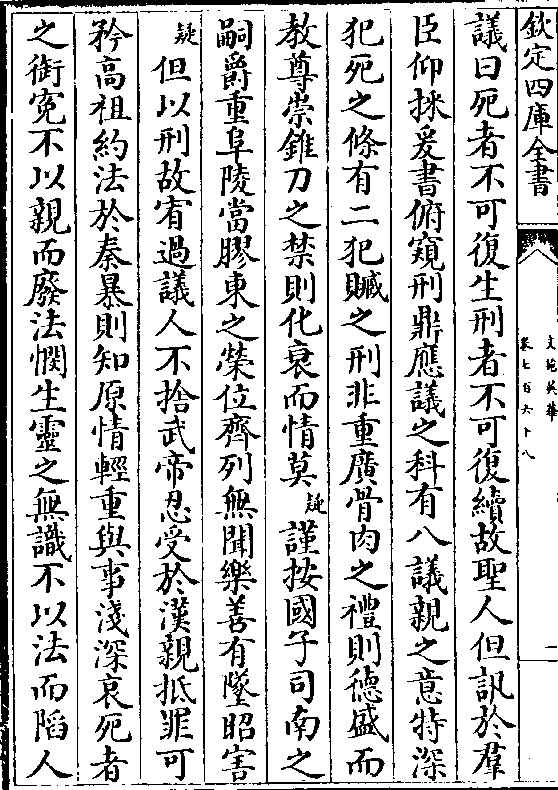 欽定四庫全書
文苑英華
卷七百六十八
一
議曰死者不可復生刑者不可復續故聖人但訊於羣
臣仰採爰書俯窺刑鼎應議之科有八議親之意特深
犯死之條有二犯贓之刑非重廣骨肉之禮則德盛而
教尊崇錐刀之禁則化衰而情莫疑謹按國子司南之
嗣爵重阜陵當膠東之榮位齊列無聞樂善有墜昭害
疑但以刑故宥過議人不捨武帝忍受於漢親抵罪可
矜高祖約法於秦暴則知原情輕重與事淺深哀死者
之銜寃不以親而廢法憫生靈之無識不以法而陷人